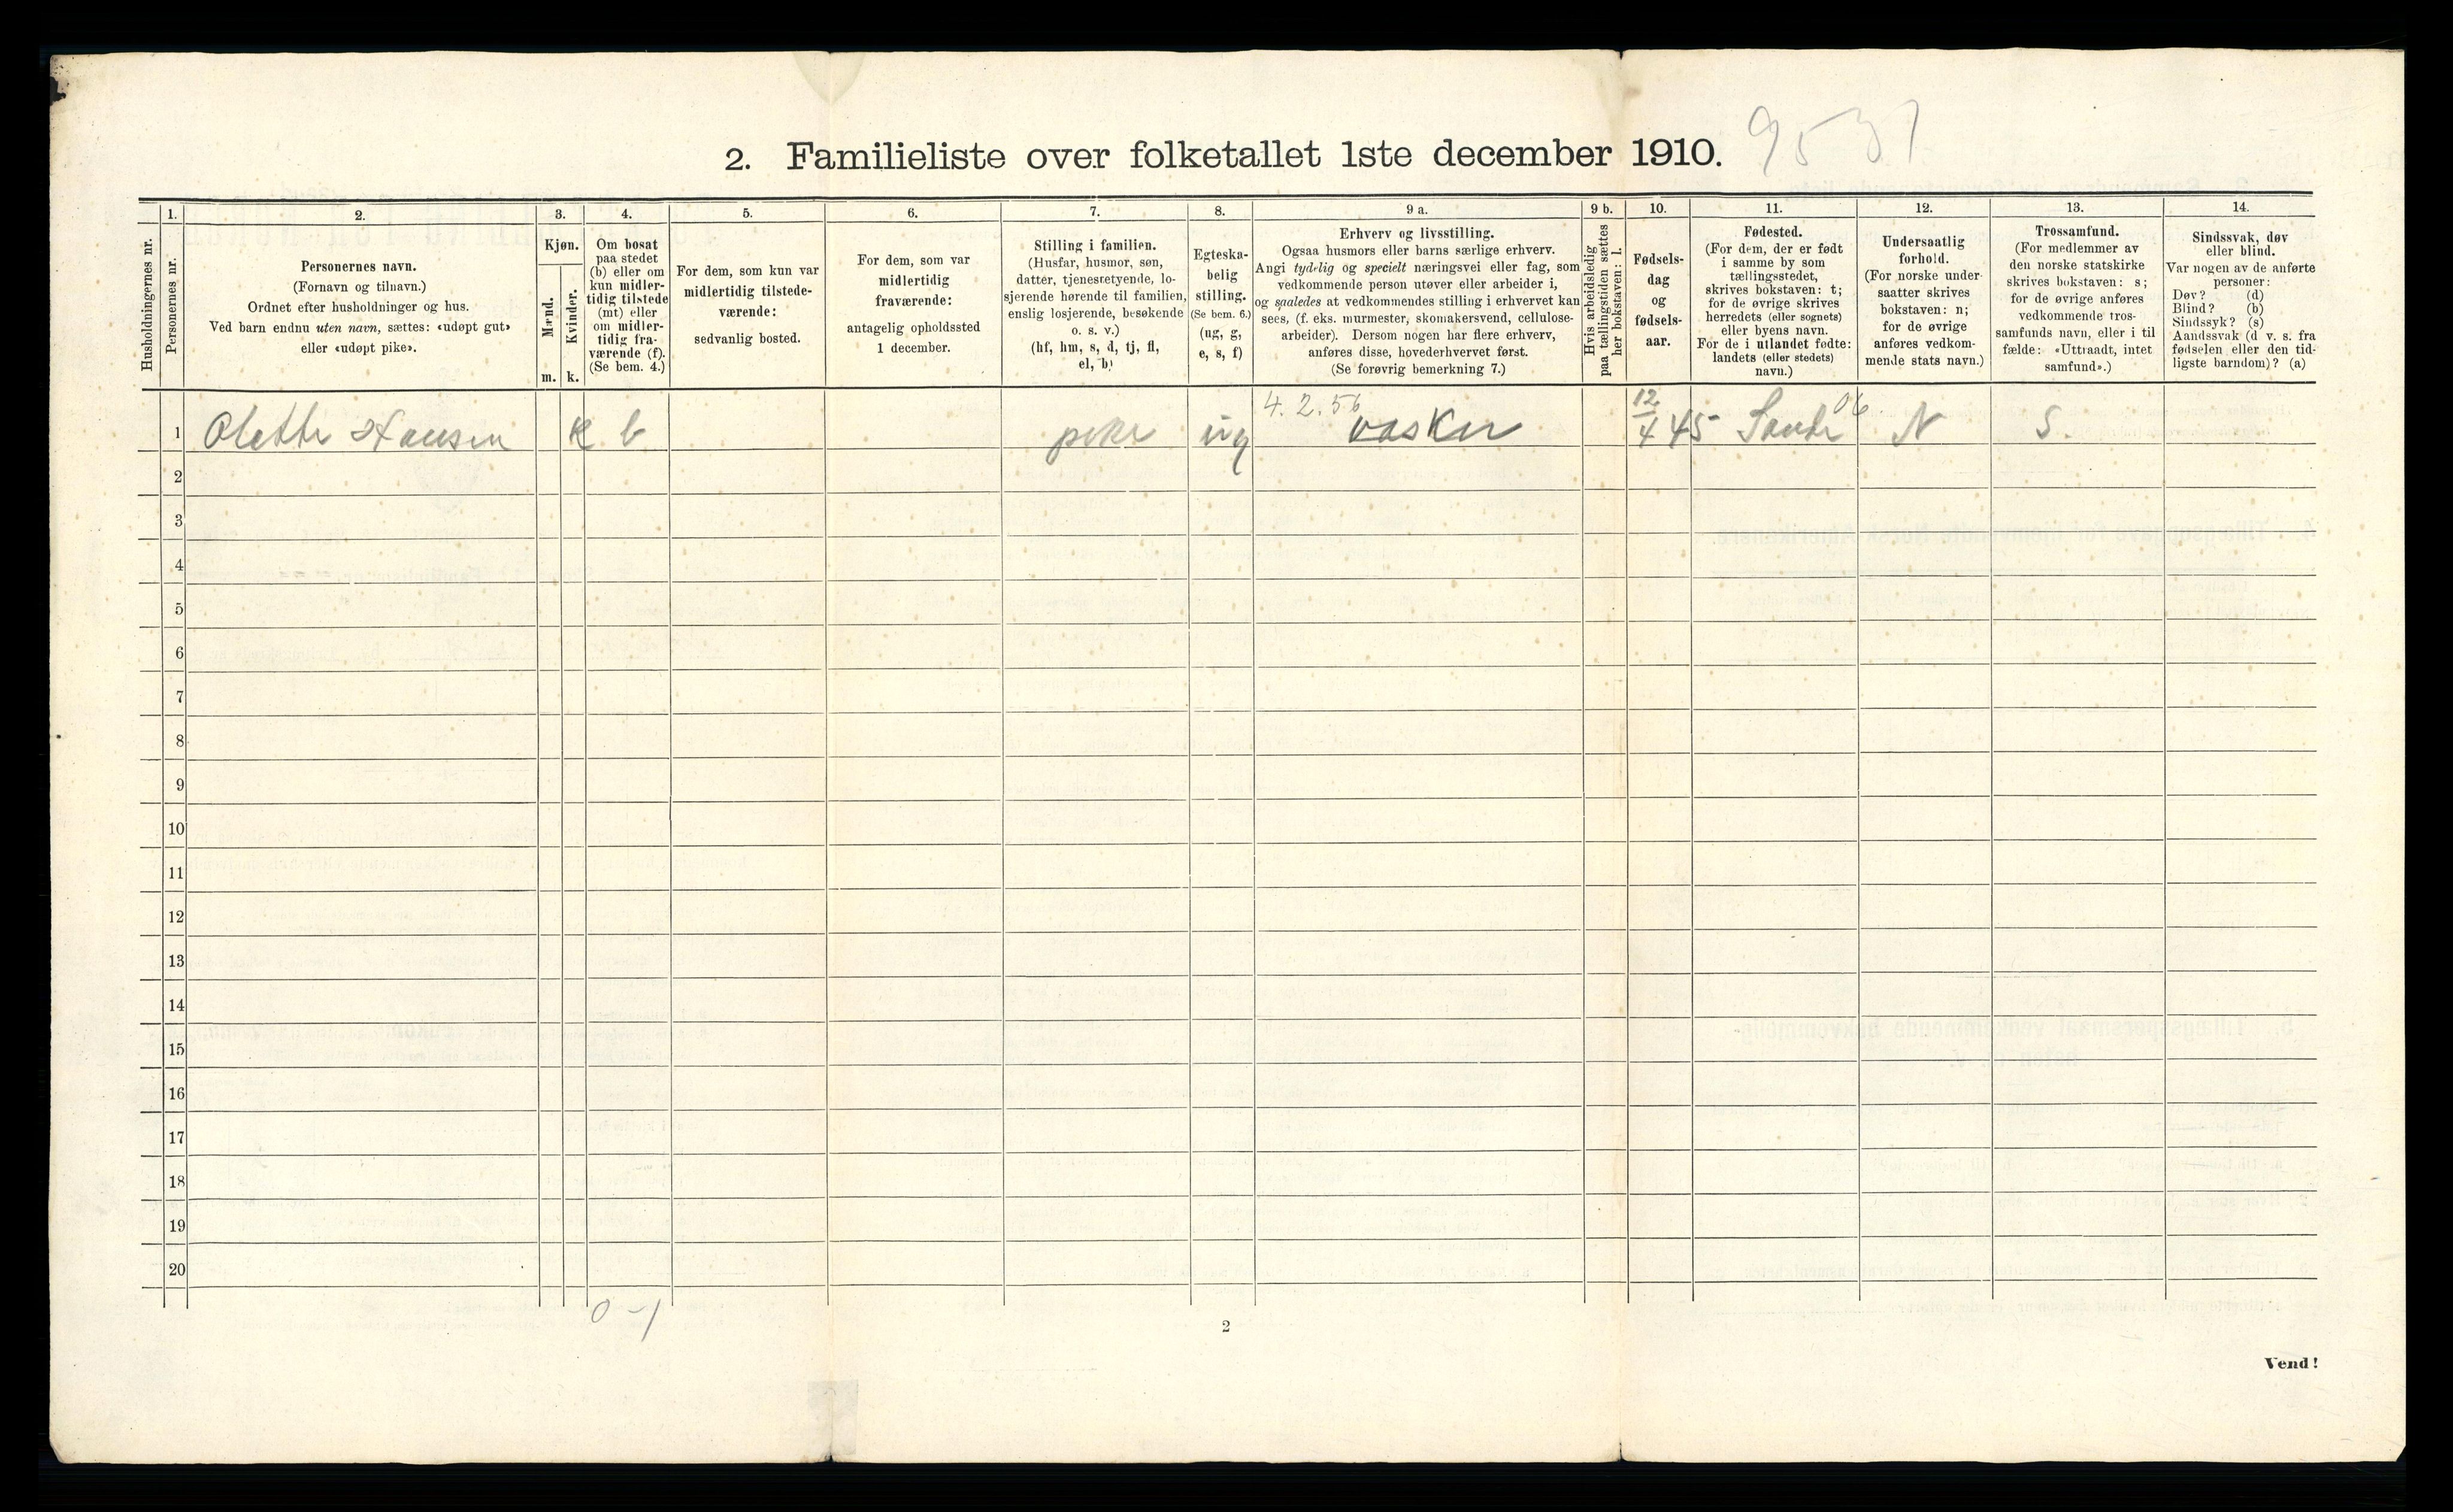 2. Familieliste over folketallet 1ste december 1910.
9531
1.
2.
3.
4.
5.
6.
7.
8.
9 a.
9 b.
10.
11.
12.
13.
14.
Husholdningernes nr.
Personernes nr.
Personernes navn.
(Fornavn og tilnavn.)
Ordnet efter husholdninger og hus.
Ved barn endnu uten navn, sættes: «udøpt gut»
eller «udøpt pike».
Kjøn.
Mænd.
Kvinder.
m.
k.
Om bosat
paa stedet
(b) eller om
kun midler-
tidig tilstede
(mt) eller
om midler-
tidig fra-
værende (f).
(Se bem. 4.)
For dem, som kun var
midlertidig tilstede-
værende:
sedvanlig bosted.
For dem, som var
midlertidig
fraværende:
antagelig opholdssted
1 december.
Stilling i familien.
(Husfar, husmor, søn,
datter, tjenestetyende, lo-
sjerende hørende til familien,
enslig losjerende, besøkende
o. s. v.)
(hf, hm, s, d, tj, fl,
el, b)
Egteska-
belig
stilling.
(Se bem. 6.)
(ug, g,
e, s, f)
Erhverv og livsstilling.
Ogsaa husmors eller barns særlige erhverv.
Angi tydelig og specielt næringsvei eller fag, som
vedkommende person utøver eller arbeider i,
og saaledes at vedkommendes stilling i erhvervet kan
sees, (f. eks. murmester, skomakersvend, cellulose-
arbeider). Dersom nogen har flere erhverv,
anføres disse, hovederhvervet først.
(Se forøvrig bemerkning 7.)
Hvis arbeidsledig
paa tællingstiden sættes
her bokstaven: l.
Fødsels-
dag
og
fødsels-
aar.
Fødested.
(For dem, der er født
i samme by som
tællingsstedet,
skrives bokstaven: t;
for de øvrige skrives
herredets (eller sognets)
eller byens navn.
For de i utlandet fødte:
landets (eller stedets)
navn.)
Undersaatlig
forhold.
(For norske under-
saatter skrives
bokstaven: n;
for de øvrige
anføres vedkom-
mende stats navn.)
Trossamfund.
(For medlemmer av
den norske statskirke
skrives bokstaven: s;
for de øvrige anføres
vedkommende tros-
samfunds navn, eller i til
fælde: «Uttraadt, intet
samfund».)
Sindssvak, døv
eller blind.
Var nogen av de anførte
personer:
Døv? (d)
Blind? (b)
Sindssyk? (s)
Aandssvak (d v. s. fra
fødselen eller den tid-
ligste barndom)? (a)
4. 2. 56
1 Olette Hansen K b pike ug vasker 12/4 45 Sande 06 N S.
2
3
4
5
6
7
8
9
10
11
12
13
14
15
16
17
18
19
20
0 - 1
2
Vend!